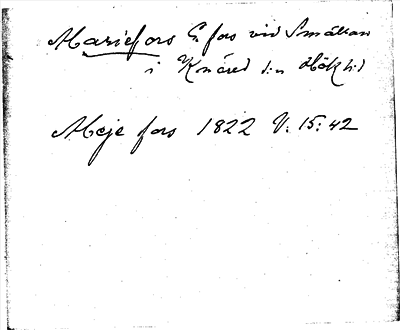 Mariefors E. fors vid Smålkan
i Knäred s:n Hök h:d
Meje fors 1822 V: 15: 42